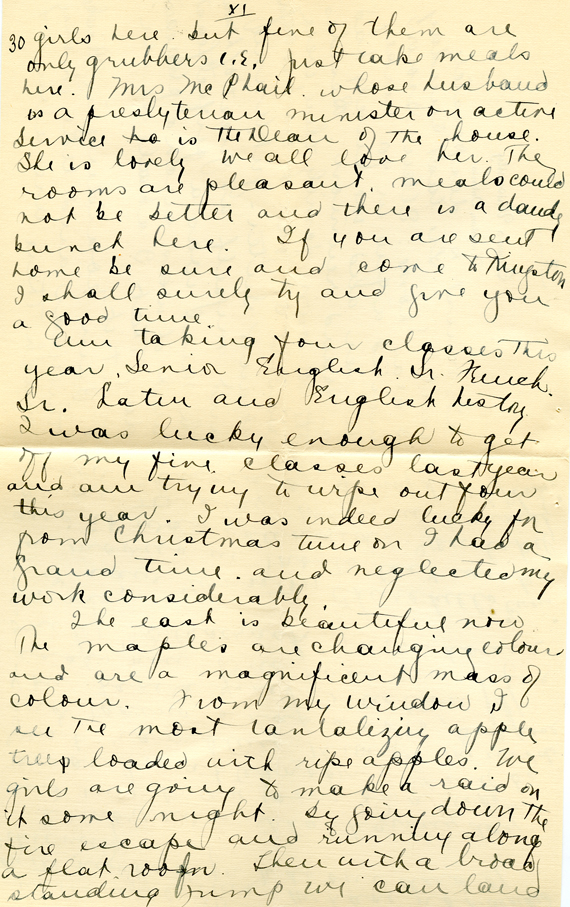 XI
30 girls here. but five of them are
only grubbers i.e. just take meals
here. Mrs McPhail whose husband
is a presbyterian minister on active
service is the Dean of the house.
She is lovely We all love her. The
rooms are pleasant, meals could
not be better and there is a dandy
bunch here. If you are sent
home be sure and come to Kingston
I shall surely try and give you
a good time.
Am taking four classes this
year, Senior English Sr. French.
Sr. Latin and English history
I was lucky enough to get
off my five classes last year
and am trying to wipe out four
this year. I was indeed lucky for
from Christmas time on I had a
grand time and neglected my
work considerably.
The east is beautiful now
The maples are changing colour
and are a magnificent mass of
colour. From my window I
see the most tantalizing apple
trees loaded with ripe apples. We
girls are going to make a raid on
it some night. By going down the
fire escape and running along
a flat roof. Then with a broad
standing jump we can land